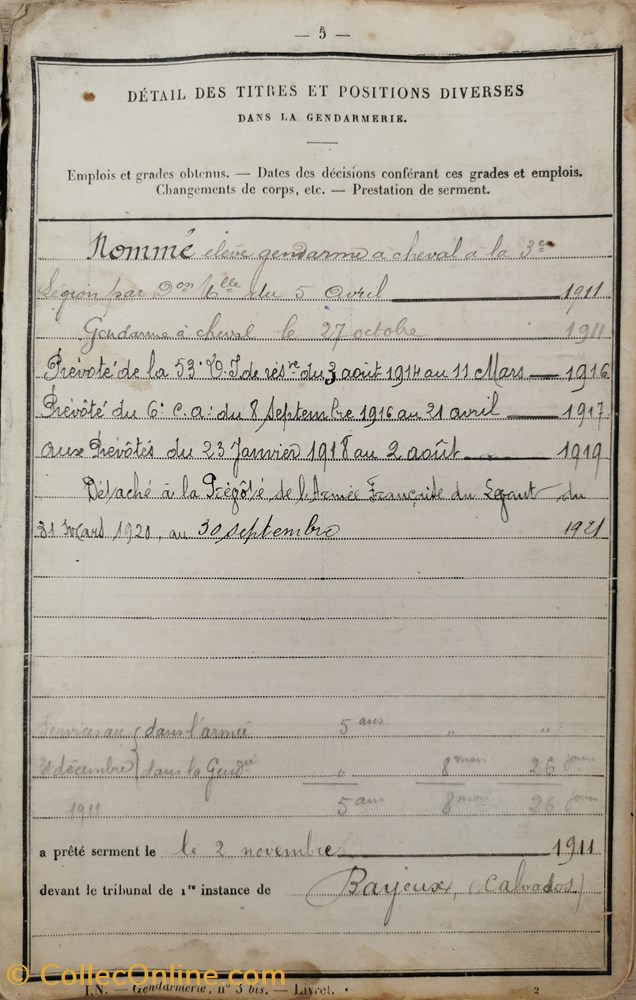 — 5 —
DÉTAIL DES TITRES ET POSITIONS DIVERSES
DANS LA GENDARMERIE.
Emplois et grades obtenus. — Dates des décisions conférant ces grades et emplois.
Changements de corps, etc. — Prestation de serment.
Nommé élève gendarme à cheval à la 3e
Légion par Don Mlle du 5 Avril 1911
Gendarme à cheval le 27 octobre 1911
Prévoté de la 53e D.I de résve du 3 août 1914 au 11 Mars 1916
Prévôté du 6e c.a. du 8 Septembre 1916 au 21 avril 1917
aux Prévôtés du 23 Janvier 1918 au 2 août 1919
Détaché à la Prévôté de l'Armée Française du Levant du
31 Mars 1920, au 30 septembre 1921
Services au (dans l'armée 5 ans " "
31 décembre) dans la Gendie " 8 mois 26 jours
1911 5 ans 8 mois 26 jours
a prêté serment le le 2 novembre 1911
devant le tribunal de 1re instance de Bayeux, (Calvados)
J.N. — Gendarmerie, n° 5 bis. — Livret. 2
© CollecOnline.com